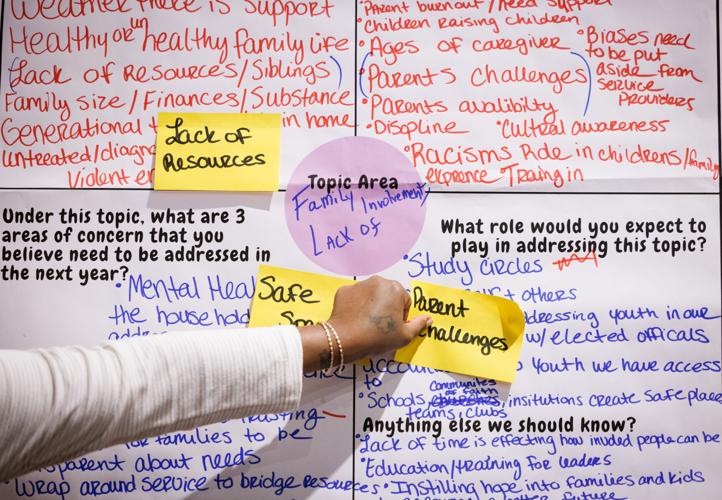 Weather there is support
Healthy or un healthy family life
(Lack of Resources/Siblings)
Family size/Finances/Substance
Generational
in home
untreated/diagn
Violent
Lack of
Resources
Parent burnout/need support
• Children raising children
• Ages of caregiver
(Parents challenges)
• Parents avalibilty
• Discpline
• Cultral awareness
• Biases need
to be put
aside from
service
Providers
• Racisms Role in childrens/family
Training in
Topic Area
Family Involvement
Lack of
Under this topic, what are 3
areas of concern that you
believe need to be addressed in
the next year?
• Mental Heal
the household
Safe
for families to be
about needs
• Wrap around service to bridge resources
What role would you expect to
play in addressing this topic?
• Study circles
+ others
dressing youth in our
w/ elected officals
Parent
challenges
youth we have access
to
communites
of faith
• Schools, churches, insitutions create safe place
teams, clubs
Anything else we should know?
• Lack of time is effecting how invuled people can be
• Education/training for leaders
• Instilling hope into families and kids